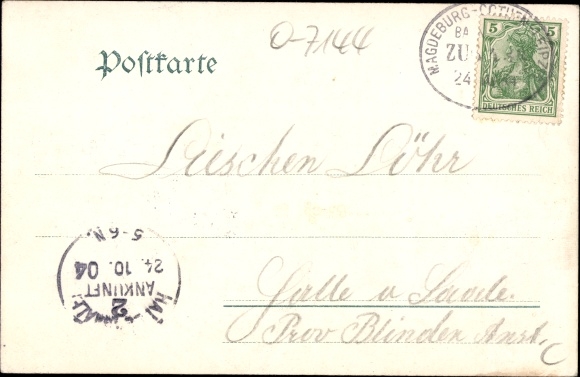 Postkarte
0-7144
MAGDEBURG-CÖTHEN-LEIPZ
BA
ZU
24
5 5
DEUTSCHES REICH
Lieschen Löhr
Halle a Saale.
Prov Blinden Anst.
HALLE
2
ANKUNFT
24. 10. 04
5-6 N.